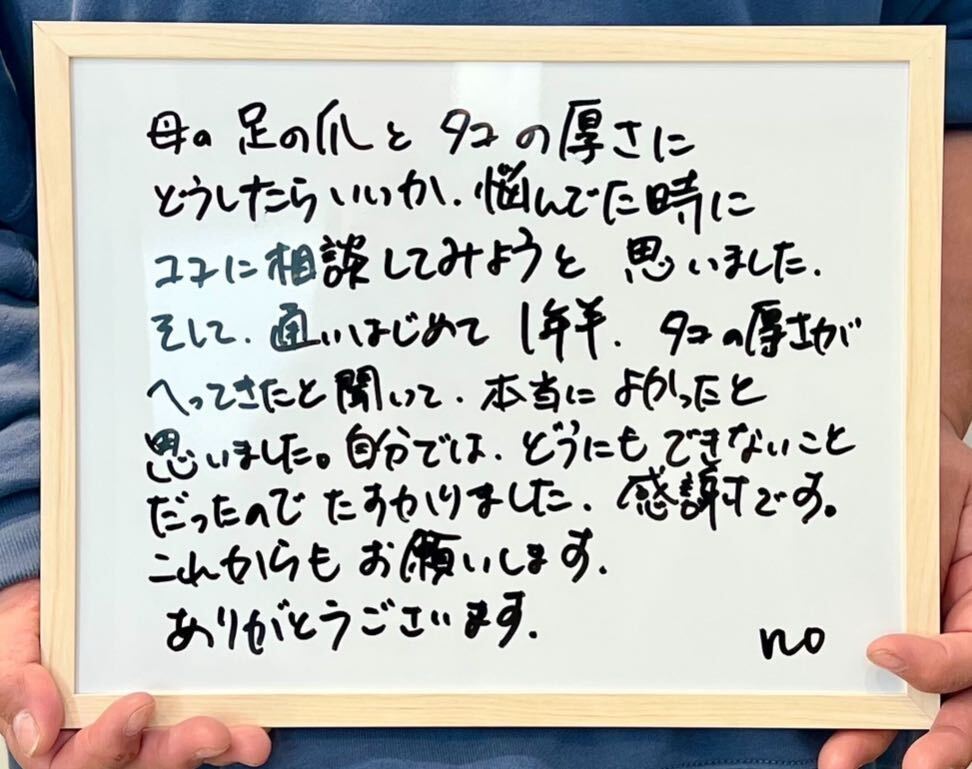 母の足の爪とタコの厚さに
どうしたらいいか、悩んでた時に
ココに相談してみようと思いました。
そして、通いはじめて1年半、タコの厚さが
へってきたと聞いて、本当によかったと
思いました。自分では、どうにもできないこと
だったのでたすかりました。感謝です。
これからもお願いします。
ありがとうございます。
no